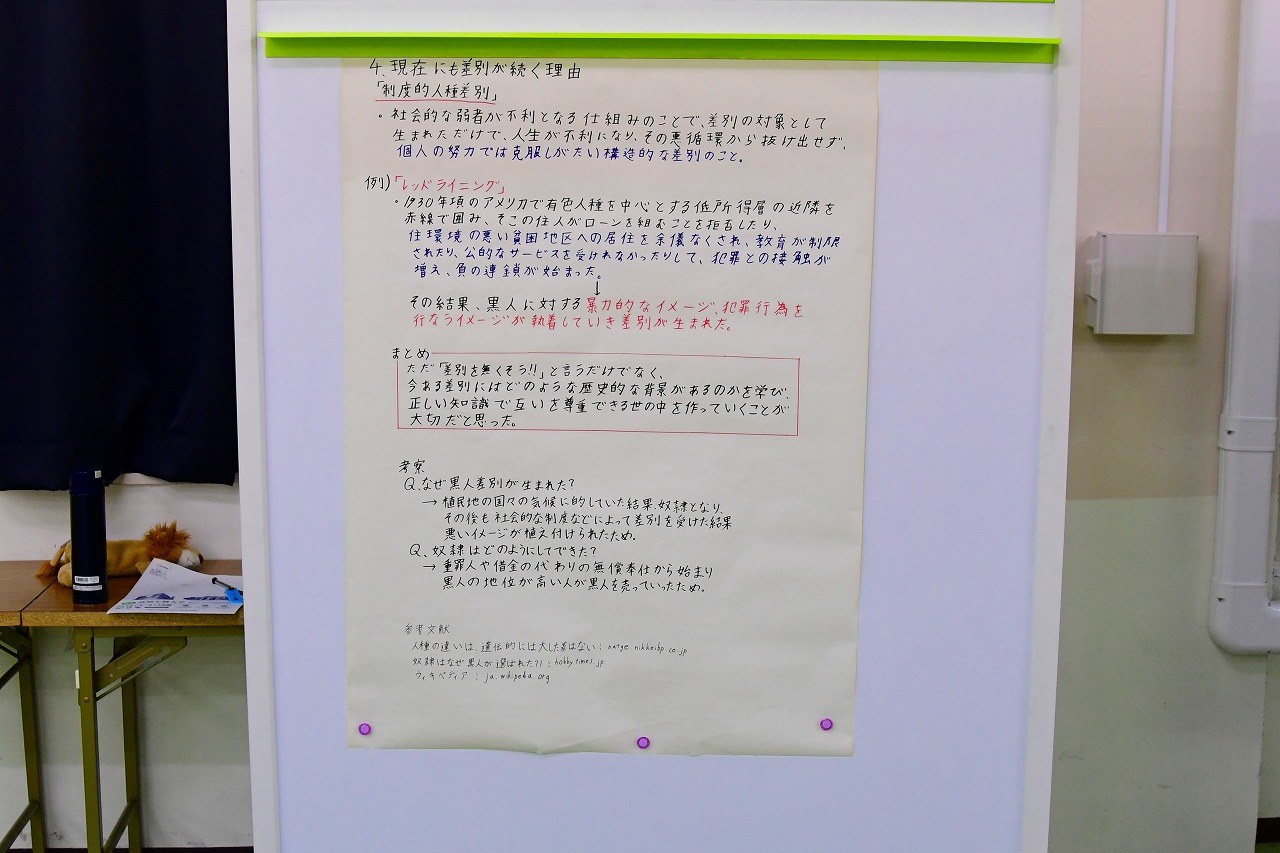 4、現在にも差別が続く理由
「制度的人種差別」
。社会的な弱者が不利となる仕組みのことで、差別の対象として
生まれただけで、人生が不利になり、その悪循環から抜け出せず、
個人の努力では克服しがたい構造的な差別のこと。
例)「レッドライニング」
。1930年頃のアメリカで有色人種を中心とする低所得層の近隣を
赤線で囲み、そこの住人がローンを組むことを拒否したり、
住環境の悪い貧困地区への居住を余儀なくされ、教育が制限
されたり、公的なサービスを受けれなかったりして、犯罪との接触が
増え、負の連鎖が始まった。
↓
その結果、黒人に対する暴力的なイメージ、犯罪行為を
行なうイメージが執着していき差別が生まれた。
まとめ
ただ「差別を無くそう!!」と言うだけでなく、
今ある差別にはどのような歴史的な背景があるのかを学び、
正しい知識で互いを尊重できる世の中を作っていくことが
大切だと思った。
考察
Q、なぜ黒人差別が生まれた?
→ 植民地の国々の気候に的していた結果、奴隷となり、
その後も社会的な制度などによって差別を受けた結果
悪いイメージが植え付けられたため。
Q、奴隷はどのようにしてできた?
→ 重罪人や借金の代わりの無償奉仕から始まり
黒人の地位が高い人が黒人を売っていったため。
参考文献
人種の違いは、遺伝的には大した差はない : natge.nikkeibp.co.jp
奴隷はなぜ黒人が選ばれた?! : hobbytimes.jp
ウィキペディア : ja.wikipedia.org